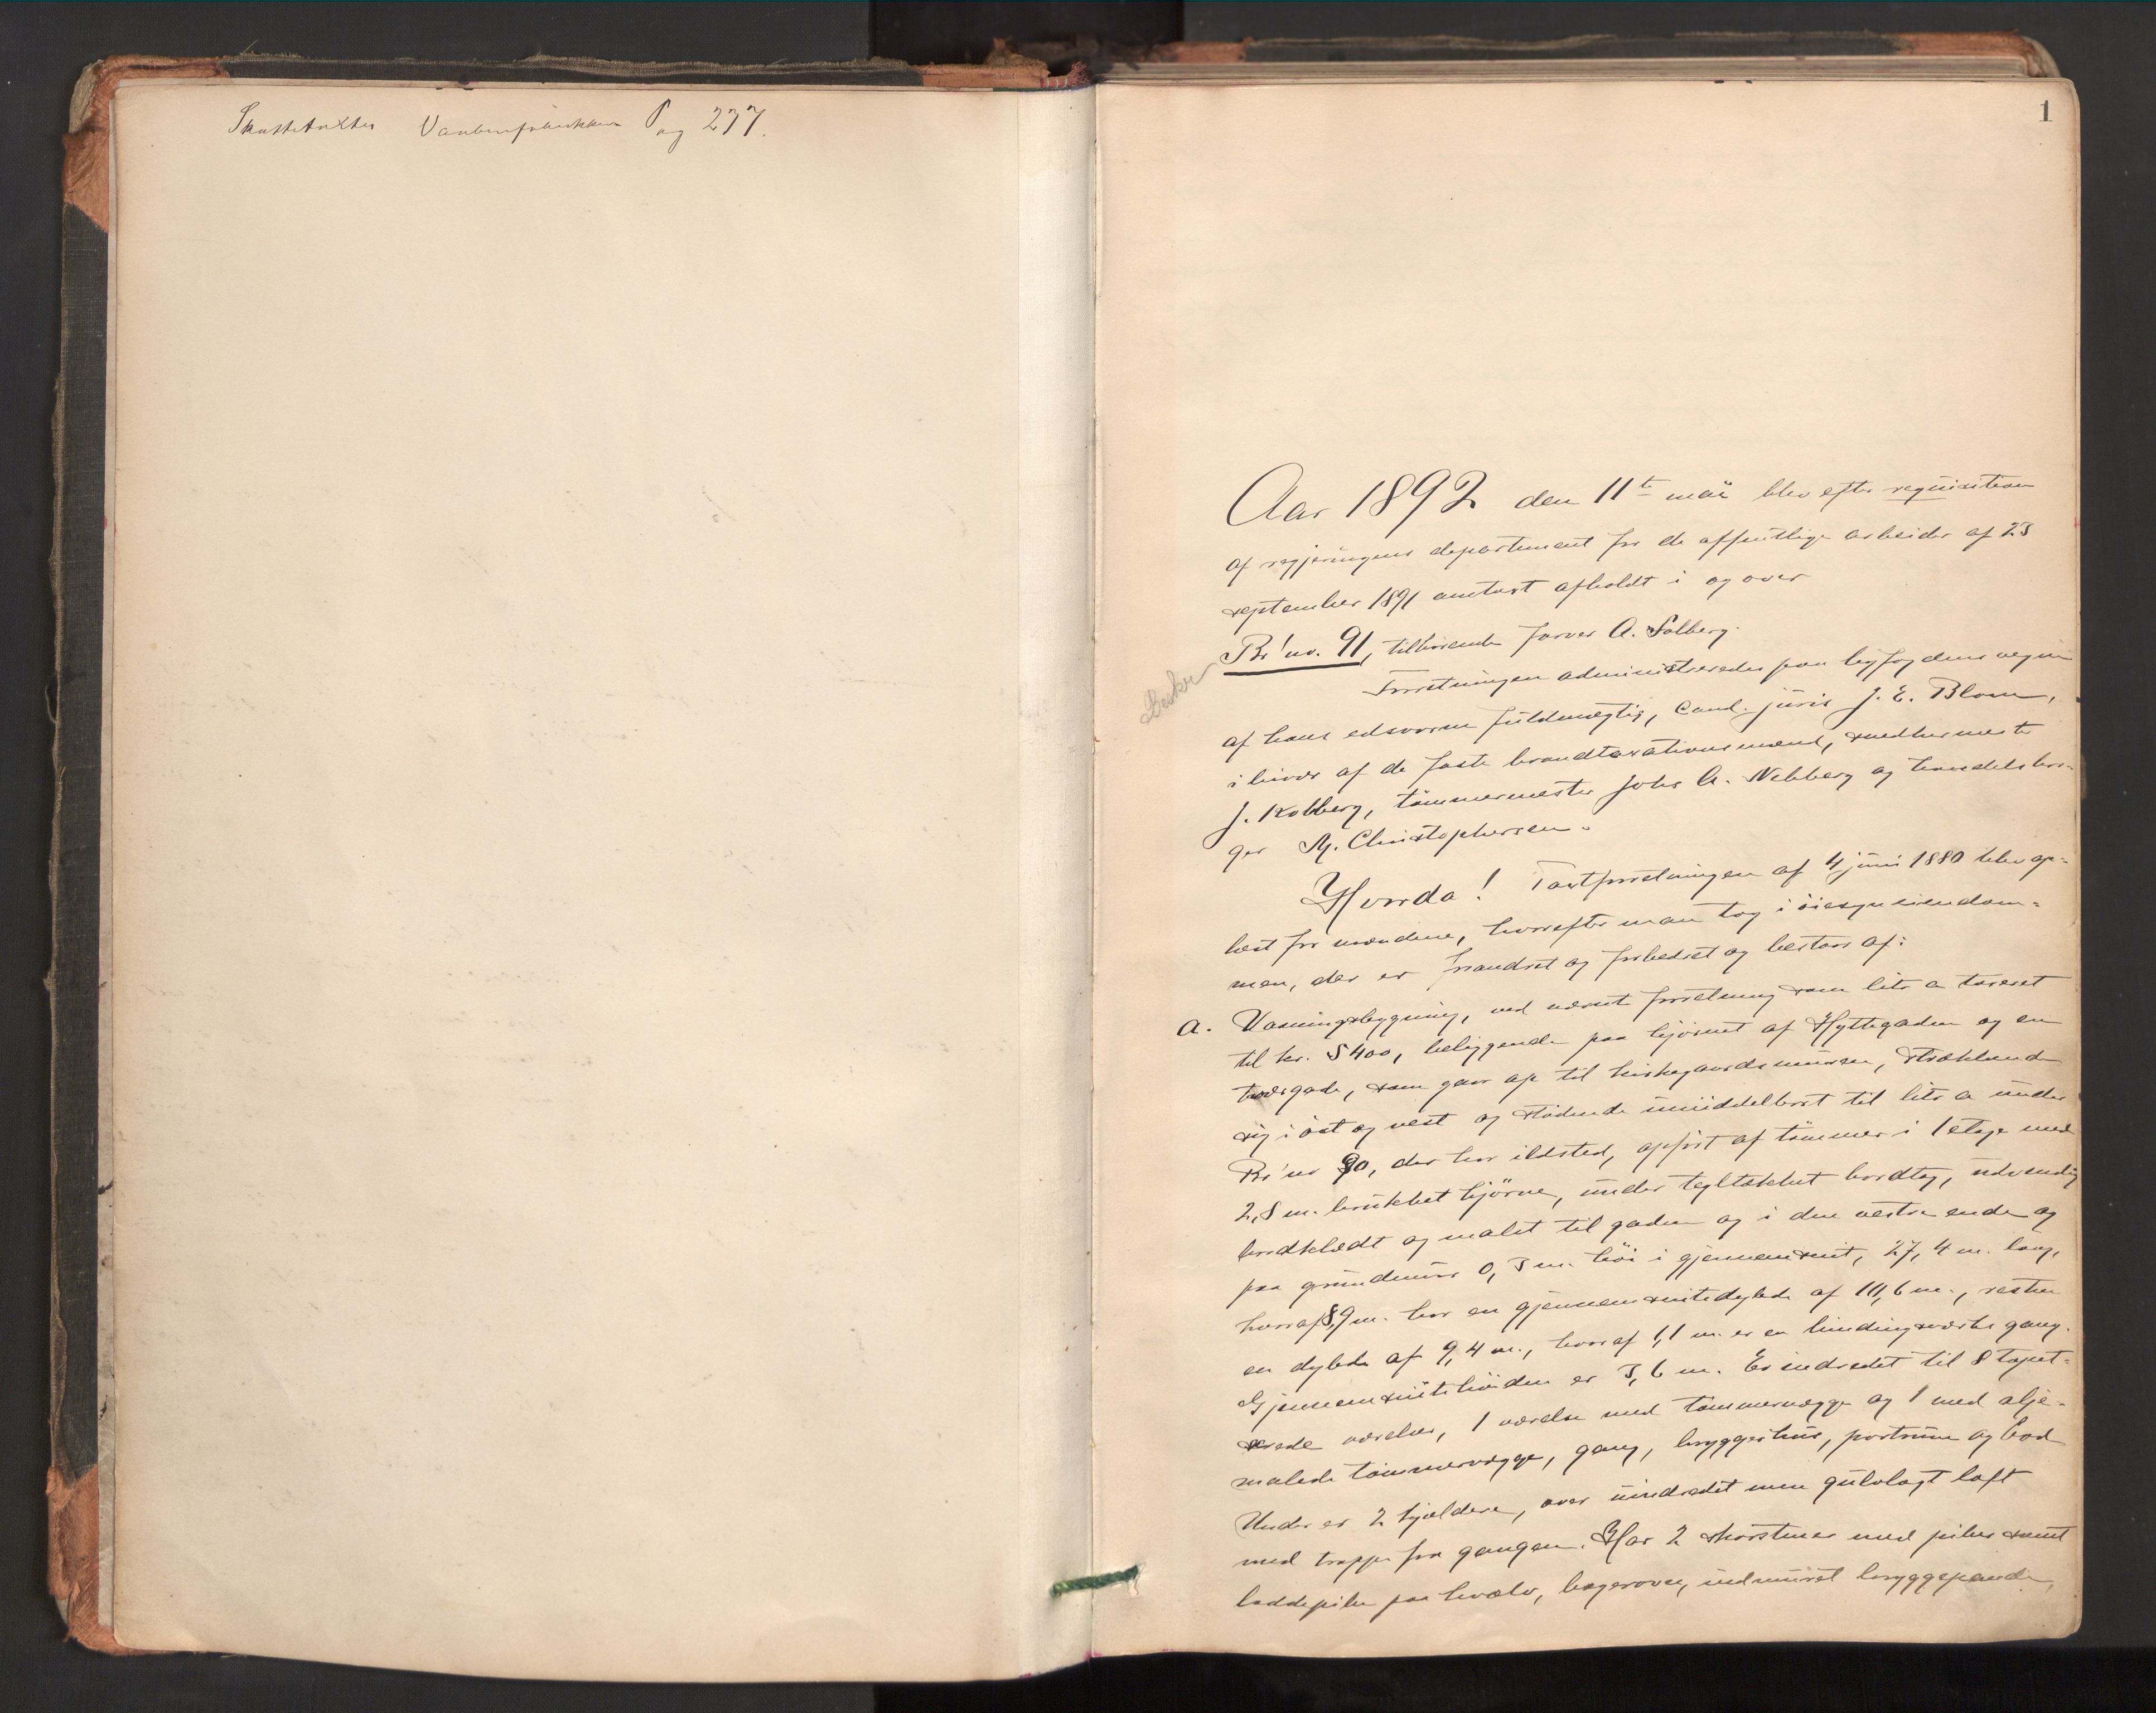 Pag 237.
1
Aar 1892 den 11te mai blev efter requisition
af regjeringens departement for de offentlige arbeider af 23
september 1891 omtaxt afholdt i og over
Br.no. 91, tilhørende farver A. Solberg.
Forretningen administreredes paa byfogdens vegne
af hans edsvorne fuldmægtig, Cand. juris J. E. Blom,
i hivær af de faste brandtaxationsmænd, snedkermester
J. Kolberg, tømmermester Johs A. Nebberg og handelsbor-
ger M. Christophersen.
Hvorda! Taxtforretningen af 4 juni 1880 blev op-
læst for mændene, hvorefter man tog i øiesyn eiendom-
men, der er forandret og forbedret og bestaar af:
a. Vaaningsbygning, ved nævnte forretning som litr a taxeret
til kr. 5400, beliggende paa hjørnet af Hyttegaden og en
tværgade, som gaar op til kirkegaardsmuren, strækkende
sig i øst og vest og stødende umiddelbart til litr a under
Br.no 90, der har ildsted, opført af tømmer i 1 etage med
2,8 m. brukket hjørne, under tegltækket bordtag, udvendig
bordklædt og malet til gaden og i den vestre ende og
paa grundmur 0,3 m. høi i gjennemsnit, 27,4 m. lang,
hvoraf 8,9 m. har en gjennemsnitsdybde af 10,6 m., resten
en dybde af 9,4 m., hvoraf 1,1 m. er en bindingsværks gang.
Gjennemsnitshøiden er 3,6 m. Er indredet til 8 tapet-
serede værelser, 1 værelse med tømmervægge og 1 med olje-
malede tømmervægge, gang, bryggerhus, portrum og bod
Under er 2 kjældere, over uindredet men gulvlagt loft
med trappe fra gangen. Har 2 skorstene med piber samt
loddepibe paa hvælv, bagerovn, indmuret bryggepande,